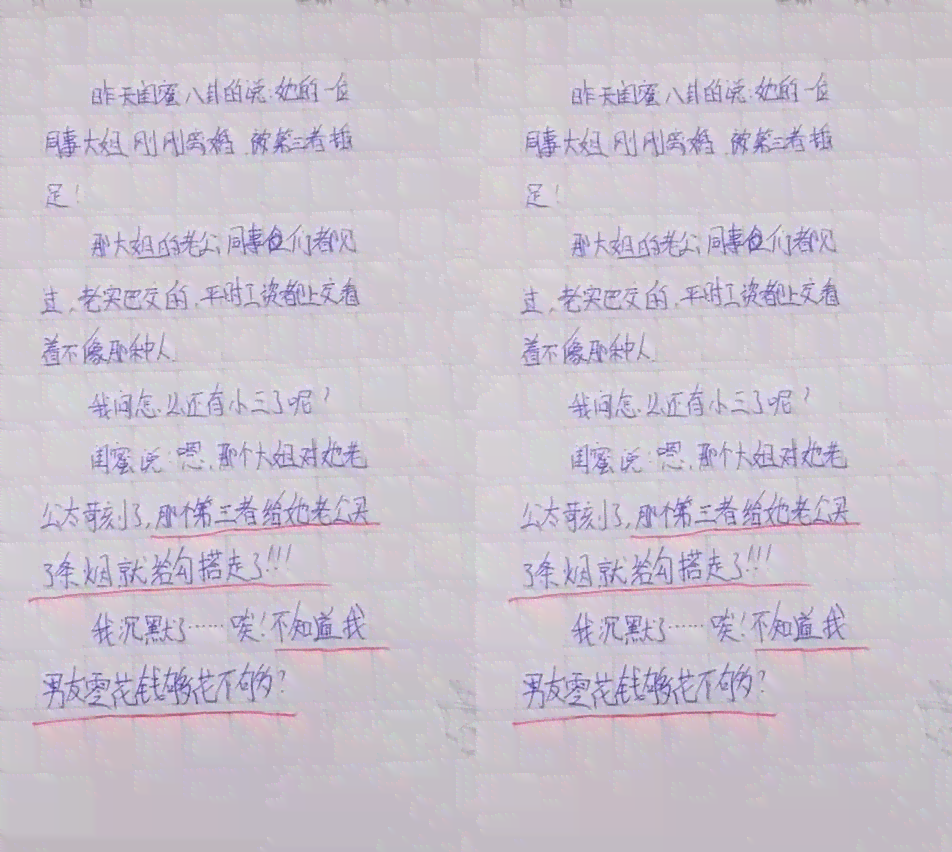 昨天闺蜜八卦的说:她的一位
同事大姐刚刚离婚,被第三者插
足!
那大姐的老公,同事他们都见
过,老实巴交的,平时工资都上交看
着不像那种人
我问怎么还有小三了呢?
闺蜜说:嗯,那个大姐对她老
公太苛刻了,那个第三者给她老公买
了条烟就给勾搭走了!!!
我沉默了……唉!不知道我
男友零花钱够花不够?
昨天闺蜜八卦的说:她的一位
同事大姐刚刚离婚,被第三者插
足!
那大姐的老公,同事他们都见
过,老实巴交的,平时工资都上交看
着不像那种人
我问怎么还有小三了呢?
闺蜜说:嗯,那个大姐对她老
公太苛刻了,那个第三者给她老公买
了条烟就给勾搭走了!!!
我沉默了……唉!不知道我
男友零花钱够花不够?